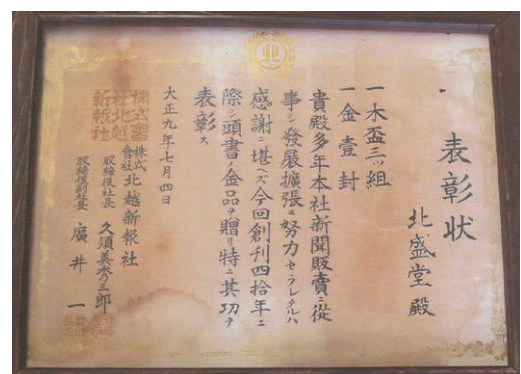 北
表彰状
北盛堂殿
一木盃三ッ組
一金壹封
貴殿多年本社新聞販賣ニ從
事シ發展擴張ニ努力セラレタルハ
感謝ニ堪ヘズ今回創刊四拾年ニ
際シ頭書ノ金品ヲ贈リ特ニ其功ヲ
表彰ス
大正九年七月四日
株式會社北越新報社
取締役社長 久須美秀三郎
取締役副社長 廣井一
株式會
社北越
新報社